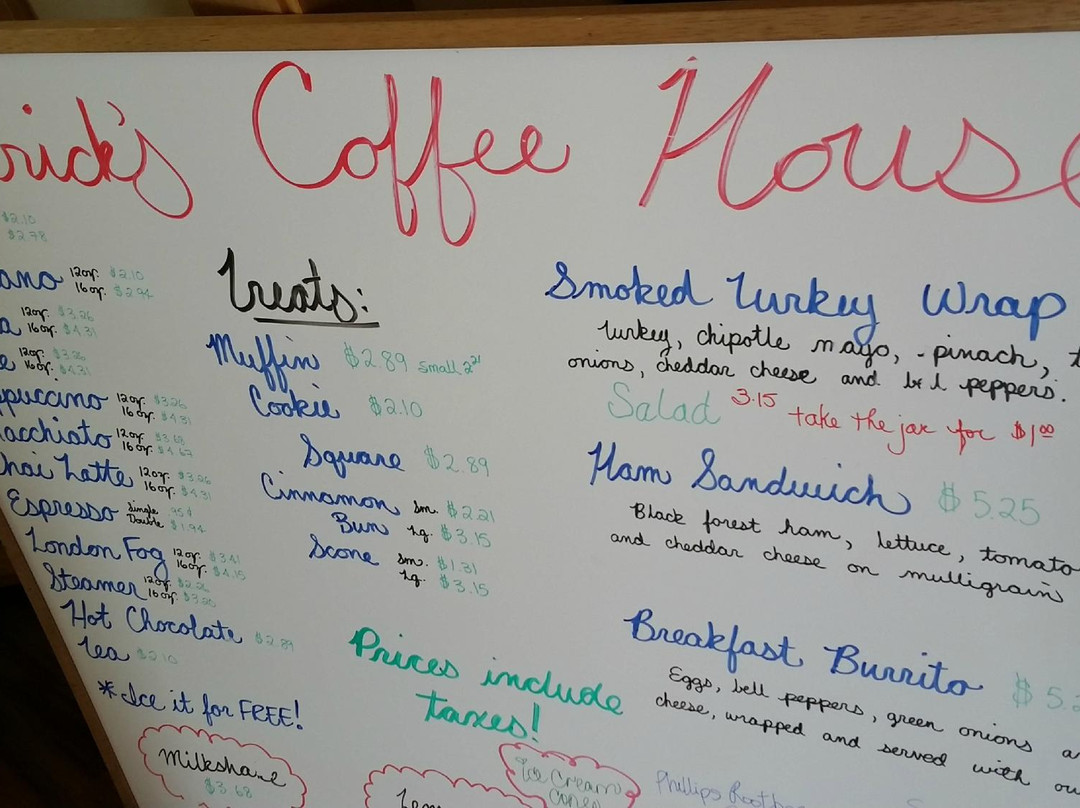 rick's Coffee House
$2.10
$2.78
ano 12oz. $2.10
16oz. $2.94
12oz. $3.26
a 16oz. $4.31
e 12oz. $3.26
16oz. $4.31
ppuccino 12oz. $3.26
16oz. $4.31
acchiato 12oz. $3.68
16oz.
hai Latte 12oz. $3.26
16oz. $4.31
Espresso Single .95¢
Double $1.94
London Fog 12oz. $3.41
16oz. $4.15
Steamer 12oz.
16oz.
Hot Chocolate $2.89
Tea $2.10
*Ice it for FREE!
Milkshake
$3.68
Treats:
Muffin $2.89 small
Cookie $2.10
Square $2.89
Cinnamon sm. $2.21
Bun lg. $3.15
Scone sm. $1.31
lg. $3.15
Prices include
taxes!
Ice Cream
Cones
Smoked Turkey Wrap
Turkey, chipotle mayo, spinach, t
onions, cheddar cheese and bell peppers.
Salad 3.15 take the jar for $1.00
Ham Sandwich $5.25
Black forest ham, lettuce, tomato
and cheddar cheese on mulligrain
Breakfast Burrito $5.2
Eggs, bell peppers, green onions a
cheese, wrapped and served with ou
Phillips Rootbe